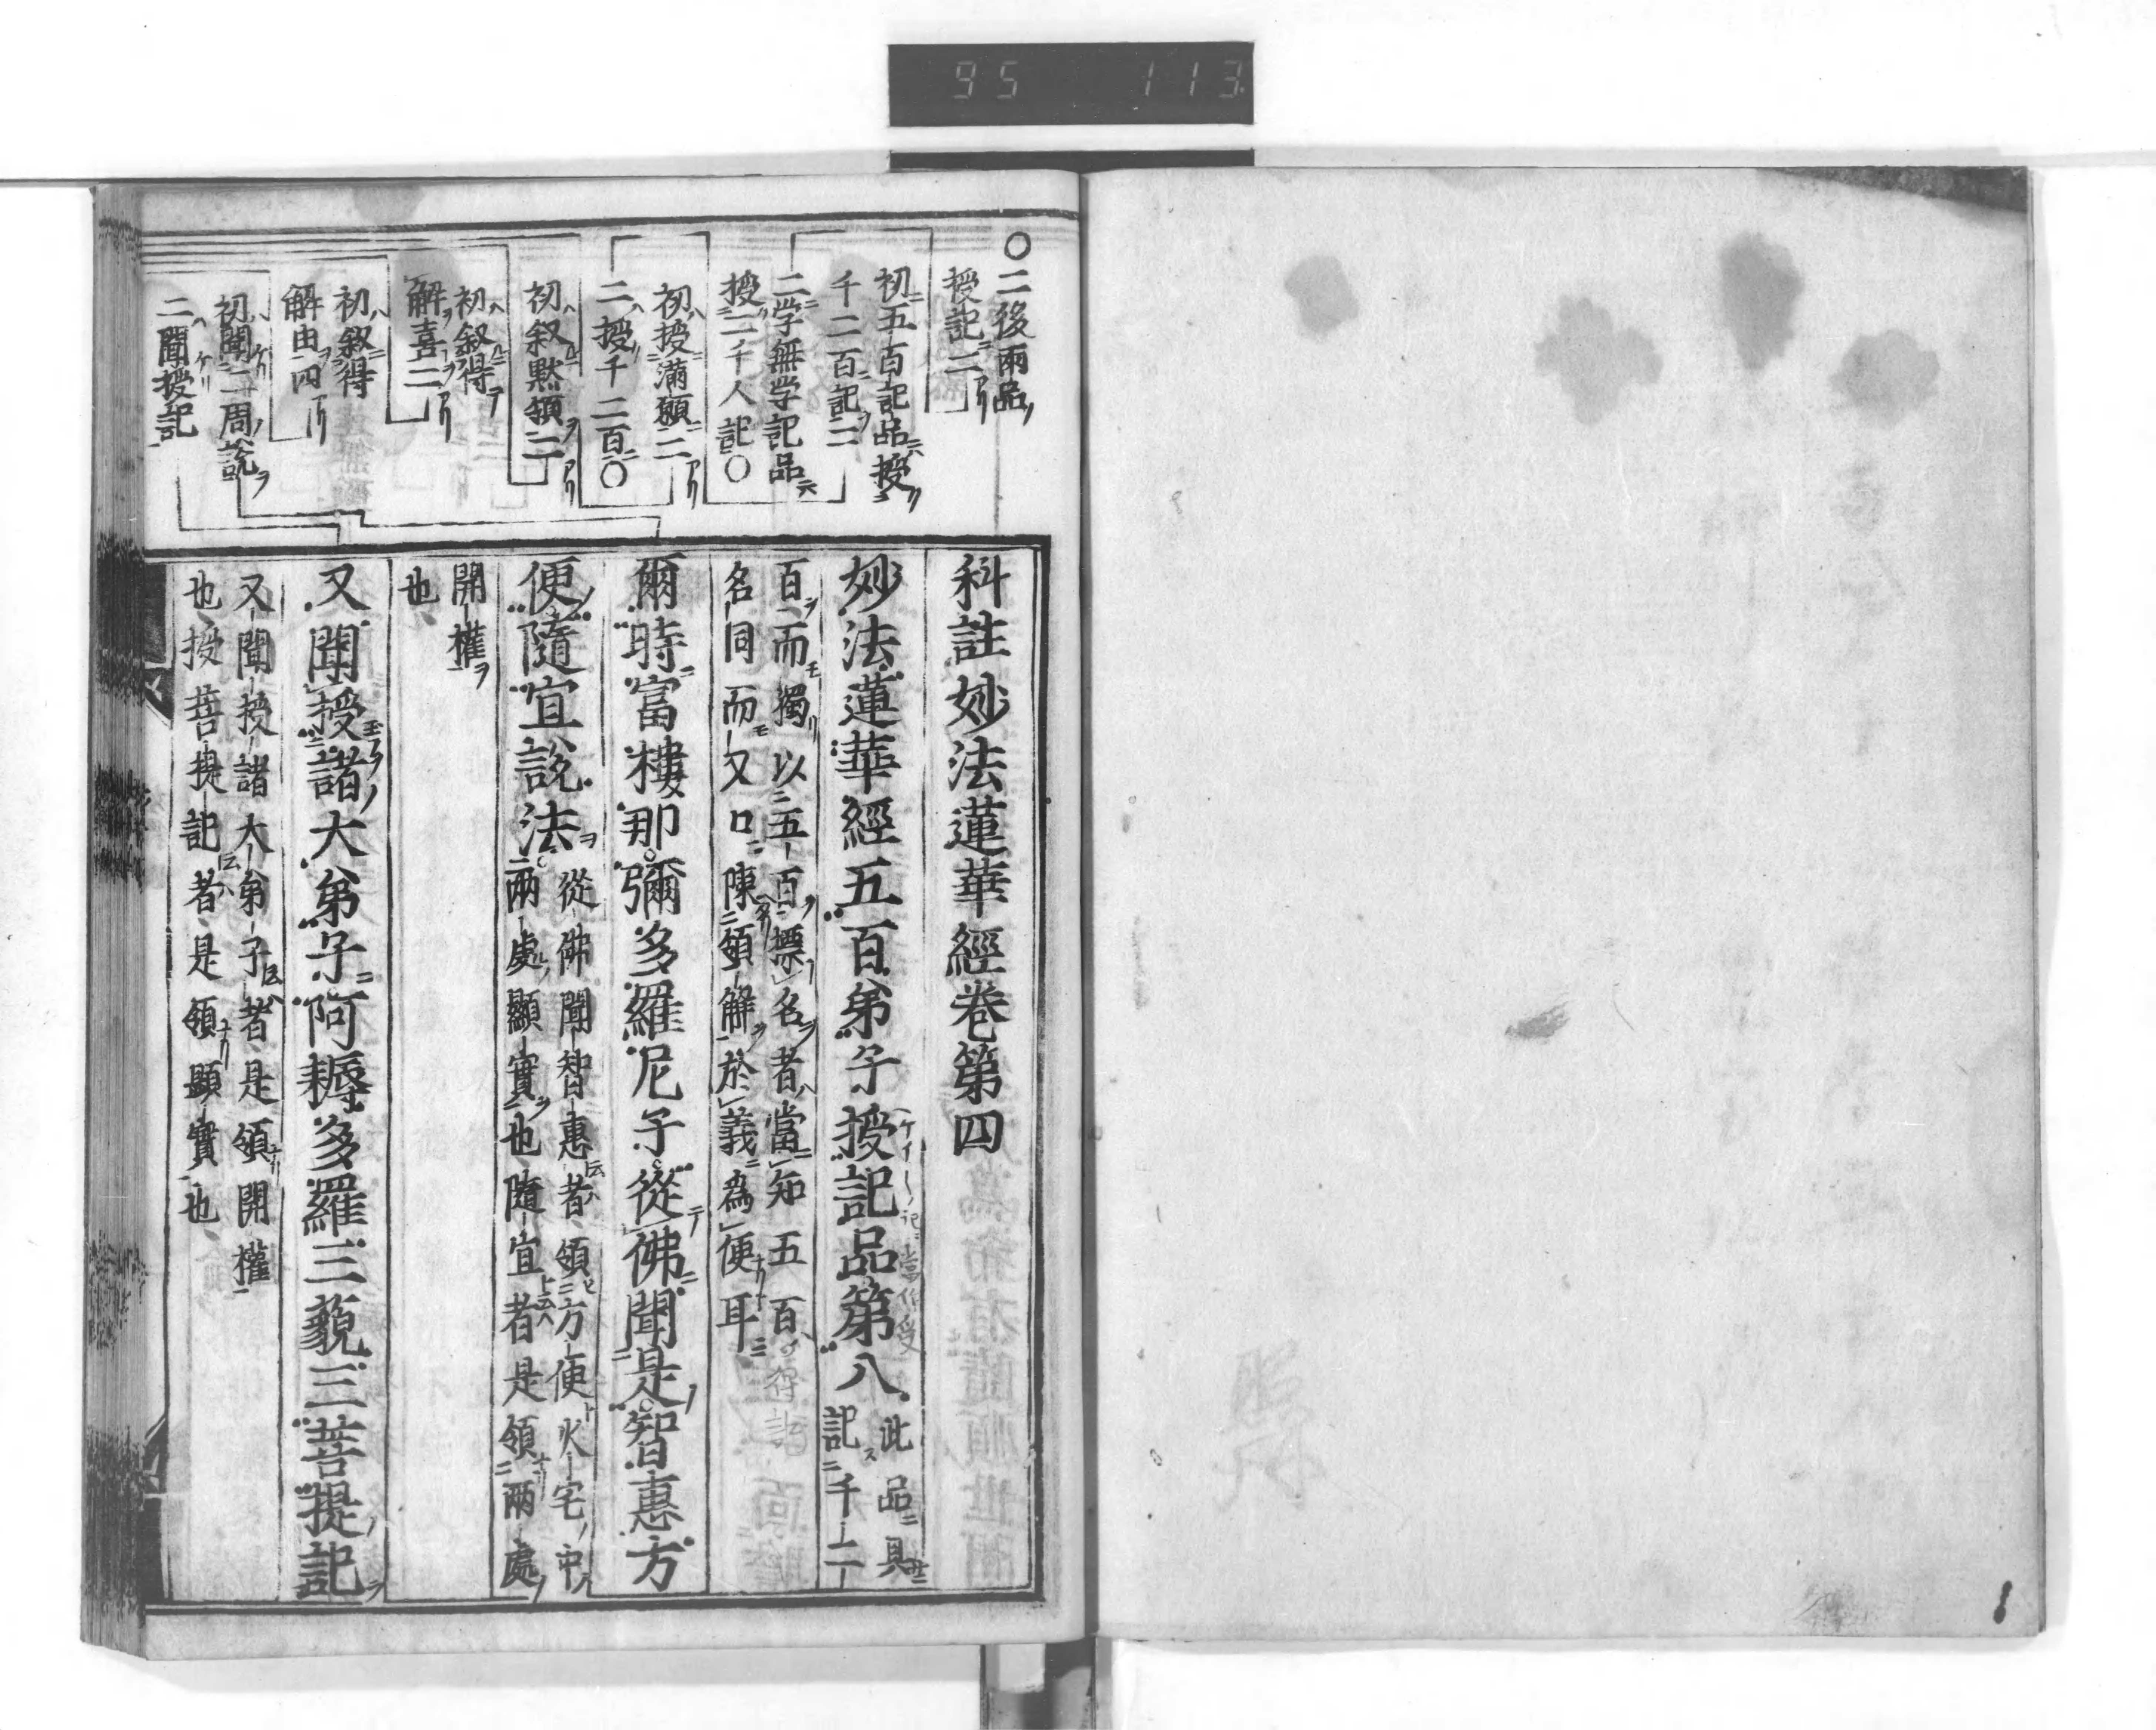 95 113
○二後兩品
授記二
初五百記品授
千二百記二
二学無学記品
授二千人記○
初授滿願二
二授千二百○
初叙黙領二
初叙得
解喜二
初叙得
解由四
初聞二周説
二聞授記
科註妙法蓮華經卷第四
妙法蓮華經五百弟子授記品第八
此品具
記千二
百而獨以五百標名者當知五百
名同而又口陳領解於義爲便耳
爾時富樓那彌多羅尼子從佛聞是智惠方
便隨宜説法
從佛聞智惠者領方便火宅中
兩處顯實也隨宜者是領兩處
開權
也
又聞授諸大弟子阿耨多羅三藐三菩提記
又聞授諸大弟子者是領開權
也授菩提記者是領顯實也